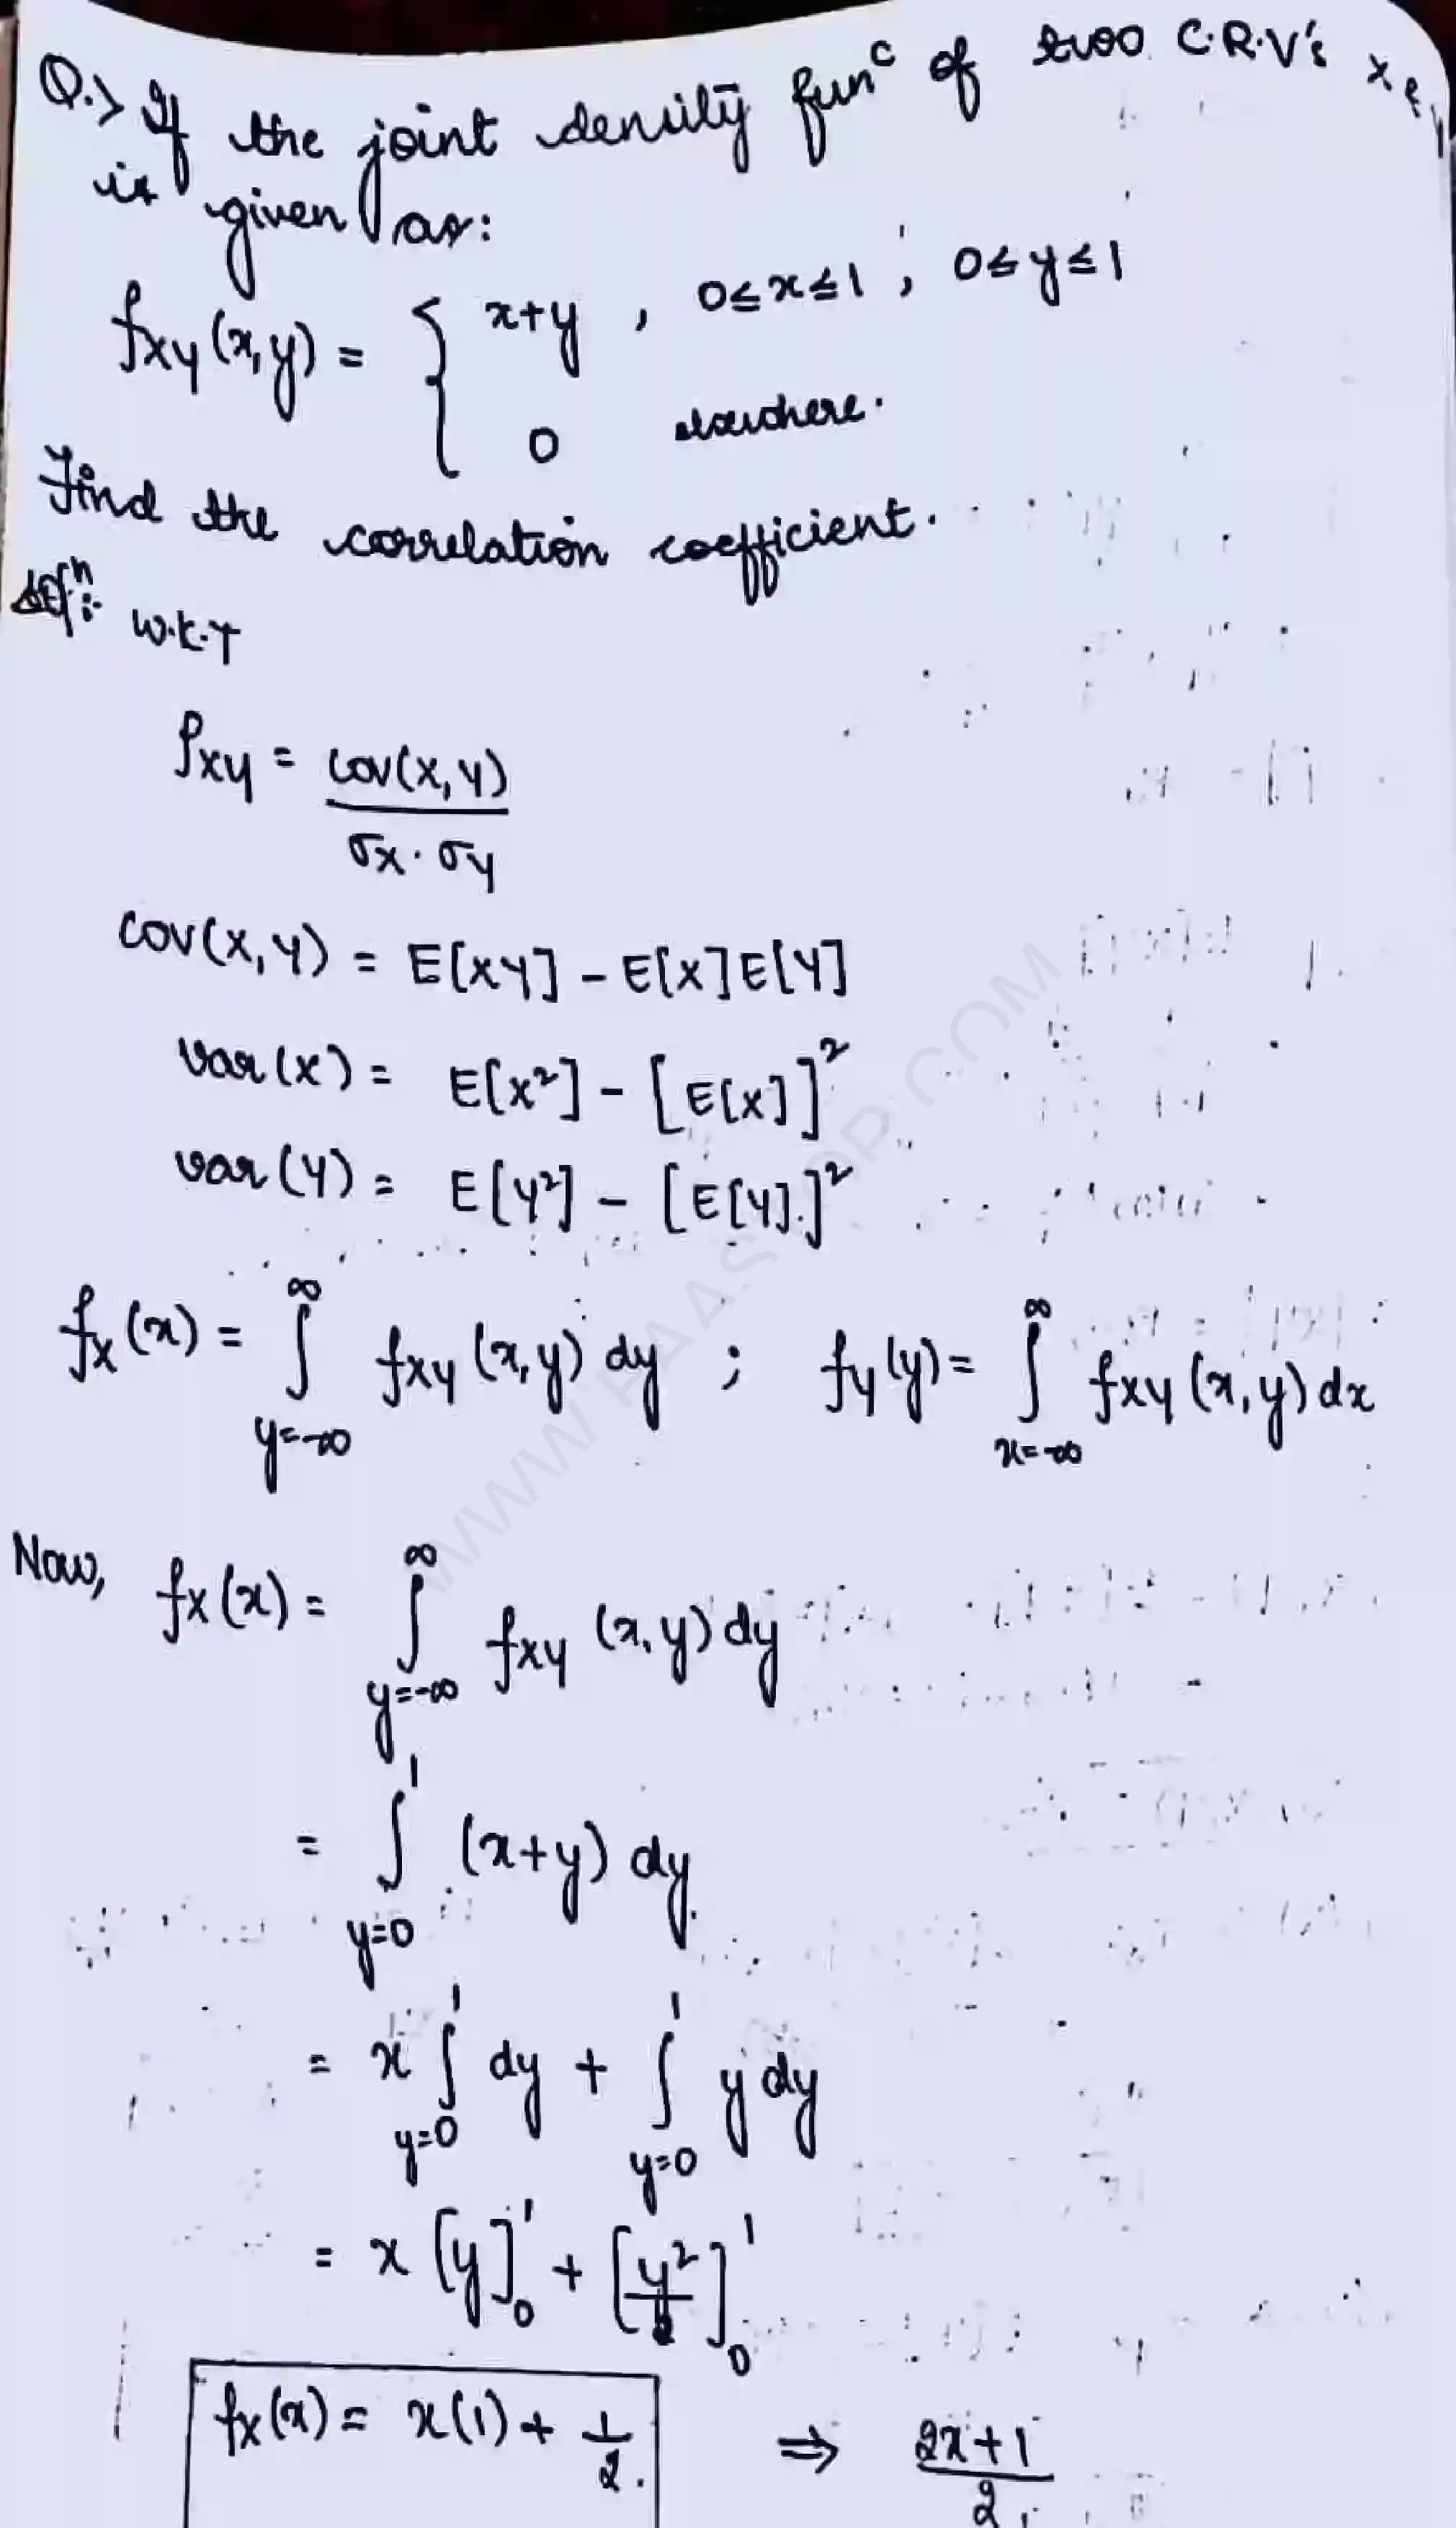 Q.> If the joint density funᶜ of two C.R.V's X &
is given as:
fxy(x,y) = { x+y , 0≤x≤1 ; 0≤y≤1
0 elsewhere.
Find the correlation coefficient.
Solⁿ:- W.K.T
ρxy = cov(x,y) / σx.σy
cov(x,y) = E[xy] - E[x]E[y]
var(x) = E[x²] - [E[x]]²
var(y) = E[y²] - [E[y]]²
fx(x) = ∫_{y=-∞}^{∞} fxy(x,y) dy ; fy(y) = ∫_{x=-∞}^{∞} fxy(x,y) dx
Now, fx(x) = ∫_{y=-∞}^{∞} fxy(x,y) dy
= ∫_{y=0}^{1} (x+y) dy
= x ∫_{y=0}^{1} dy + ∫_{y=0}^{1} y dy
= x [y]_0^1 + [y²/2]_0^1
fx(x) = x(1) + 1/2. ⇒ (2x+1)/2.